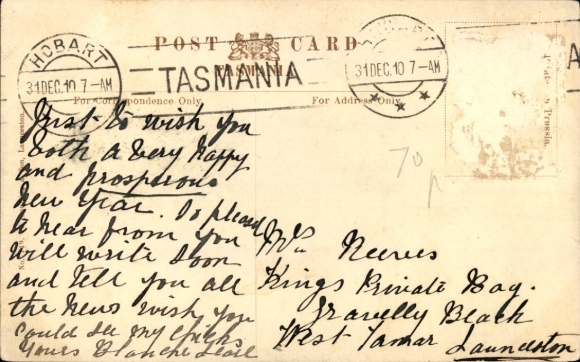 POST CARD
TASMANIA
HOBART
31 DEC. 10 7-AM
TASMANIA
31 DEC. 10 7-AM
For Correspondence Only.
For Address Only.
Prussia.
Just to wish you
both a very happy
and prosperous
New Year. So pleased
to hear from you
will write soon
and tell you all
the News wish you
could see my chicks
Yours Blanche
Mrs Neeves
Kings Private Bag.
Gravelly Beach
West Tamar Launceston
70